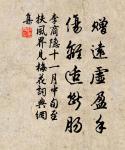 贈遠虛盈手
傷離適斷腸
李商隱十一月中旬至
扶風界見梅花詞典網
集